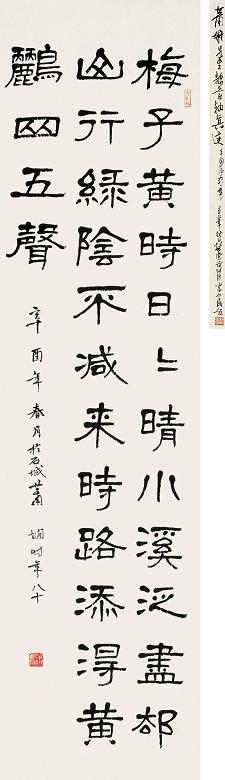 梅子黄時日〻晴小溪泛盡却
山行綠陰不減来時路添得黄
鸝四五聲
辛酉年春月於石城蕭嫻時年八十